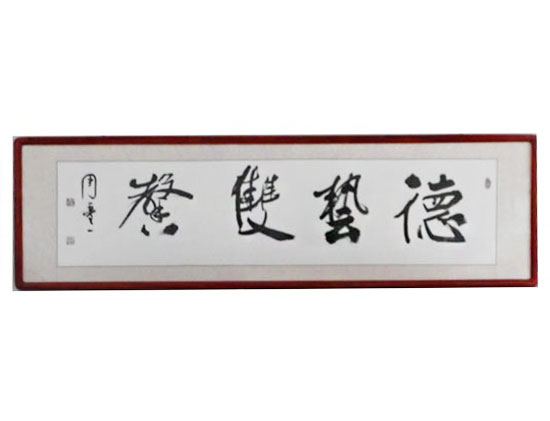 德藝雙馨